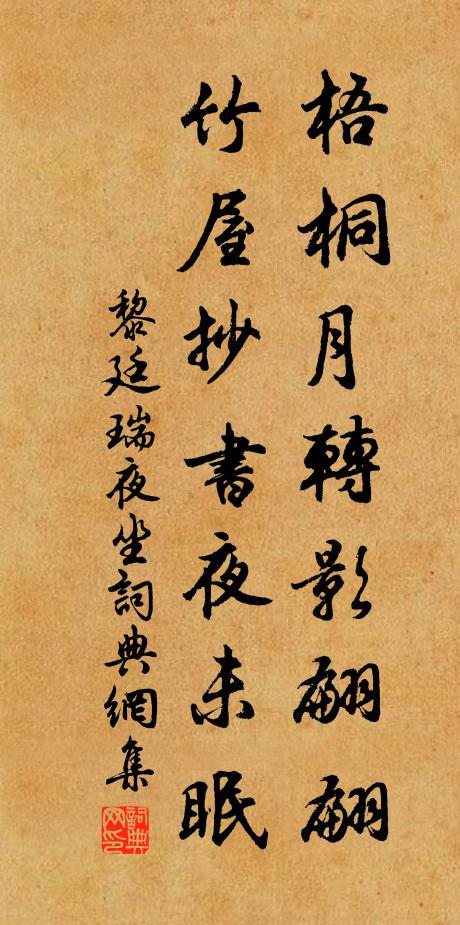 梧桐月轉影翩翩
竹屋抄書夜未眠
黎廷瑞夜坐詞典網集
詞典网印